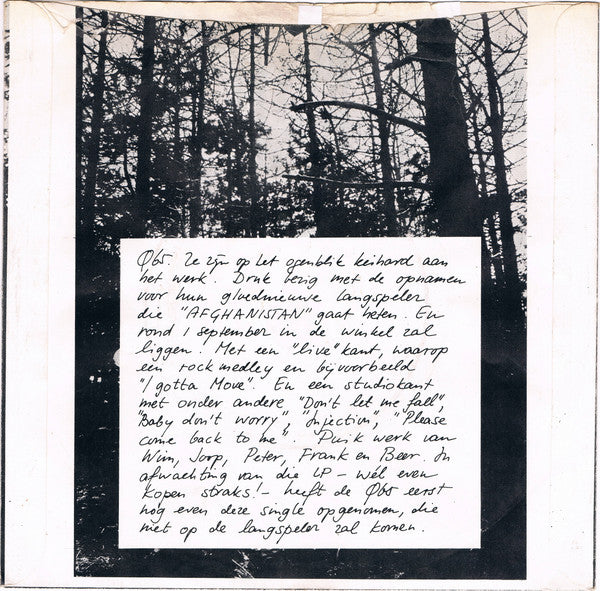 Q65. Ze zijn op het ogenblik keihard aan
het werk. Druk bezig met de opnamen
voor hun gloednieuwe langspeler
die "AFGHANISTAN" gaat heten. En
rond 1 september in de winkel zal
liggen. Met een "live" kant, waarop
een rock medley en bijvoorbeeld
"I gotta Move". En een studiokant
met onder andere "Don't let me fall",
"Baby don't worry", "Injection", "Please
come back to me". Puik werk van
Wim, Joop, Peter, Frank en Beer. In
afwachting van die LP - wél even
kopen straks! - heeft de Q65 eerst
nog even deze single opgenomen, die
niet op de langspeler zal komen.